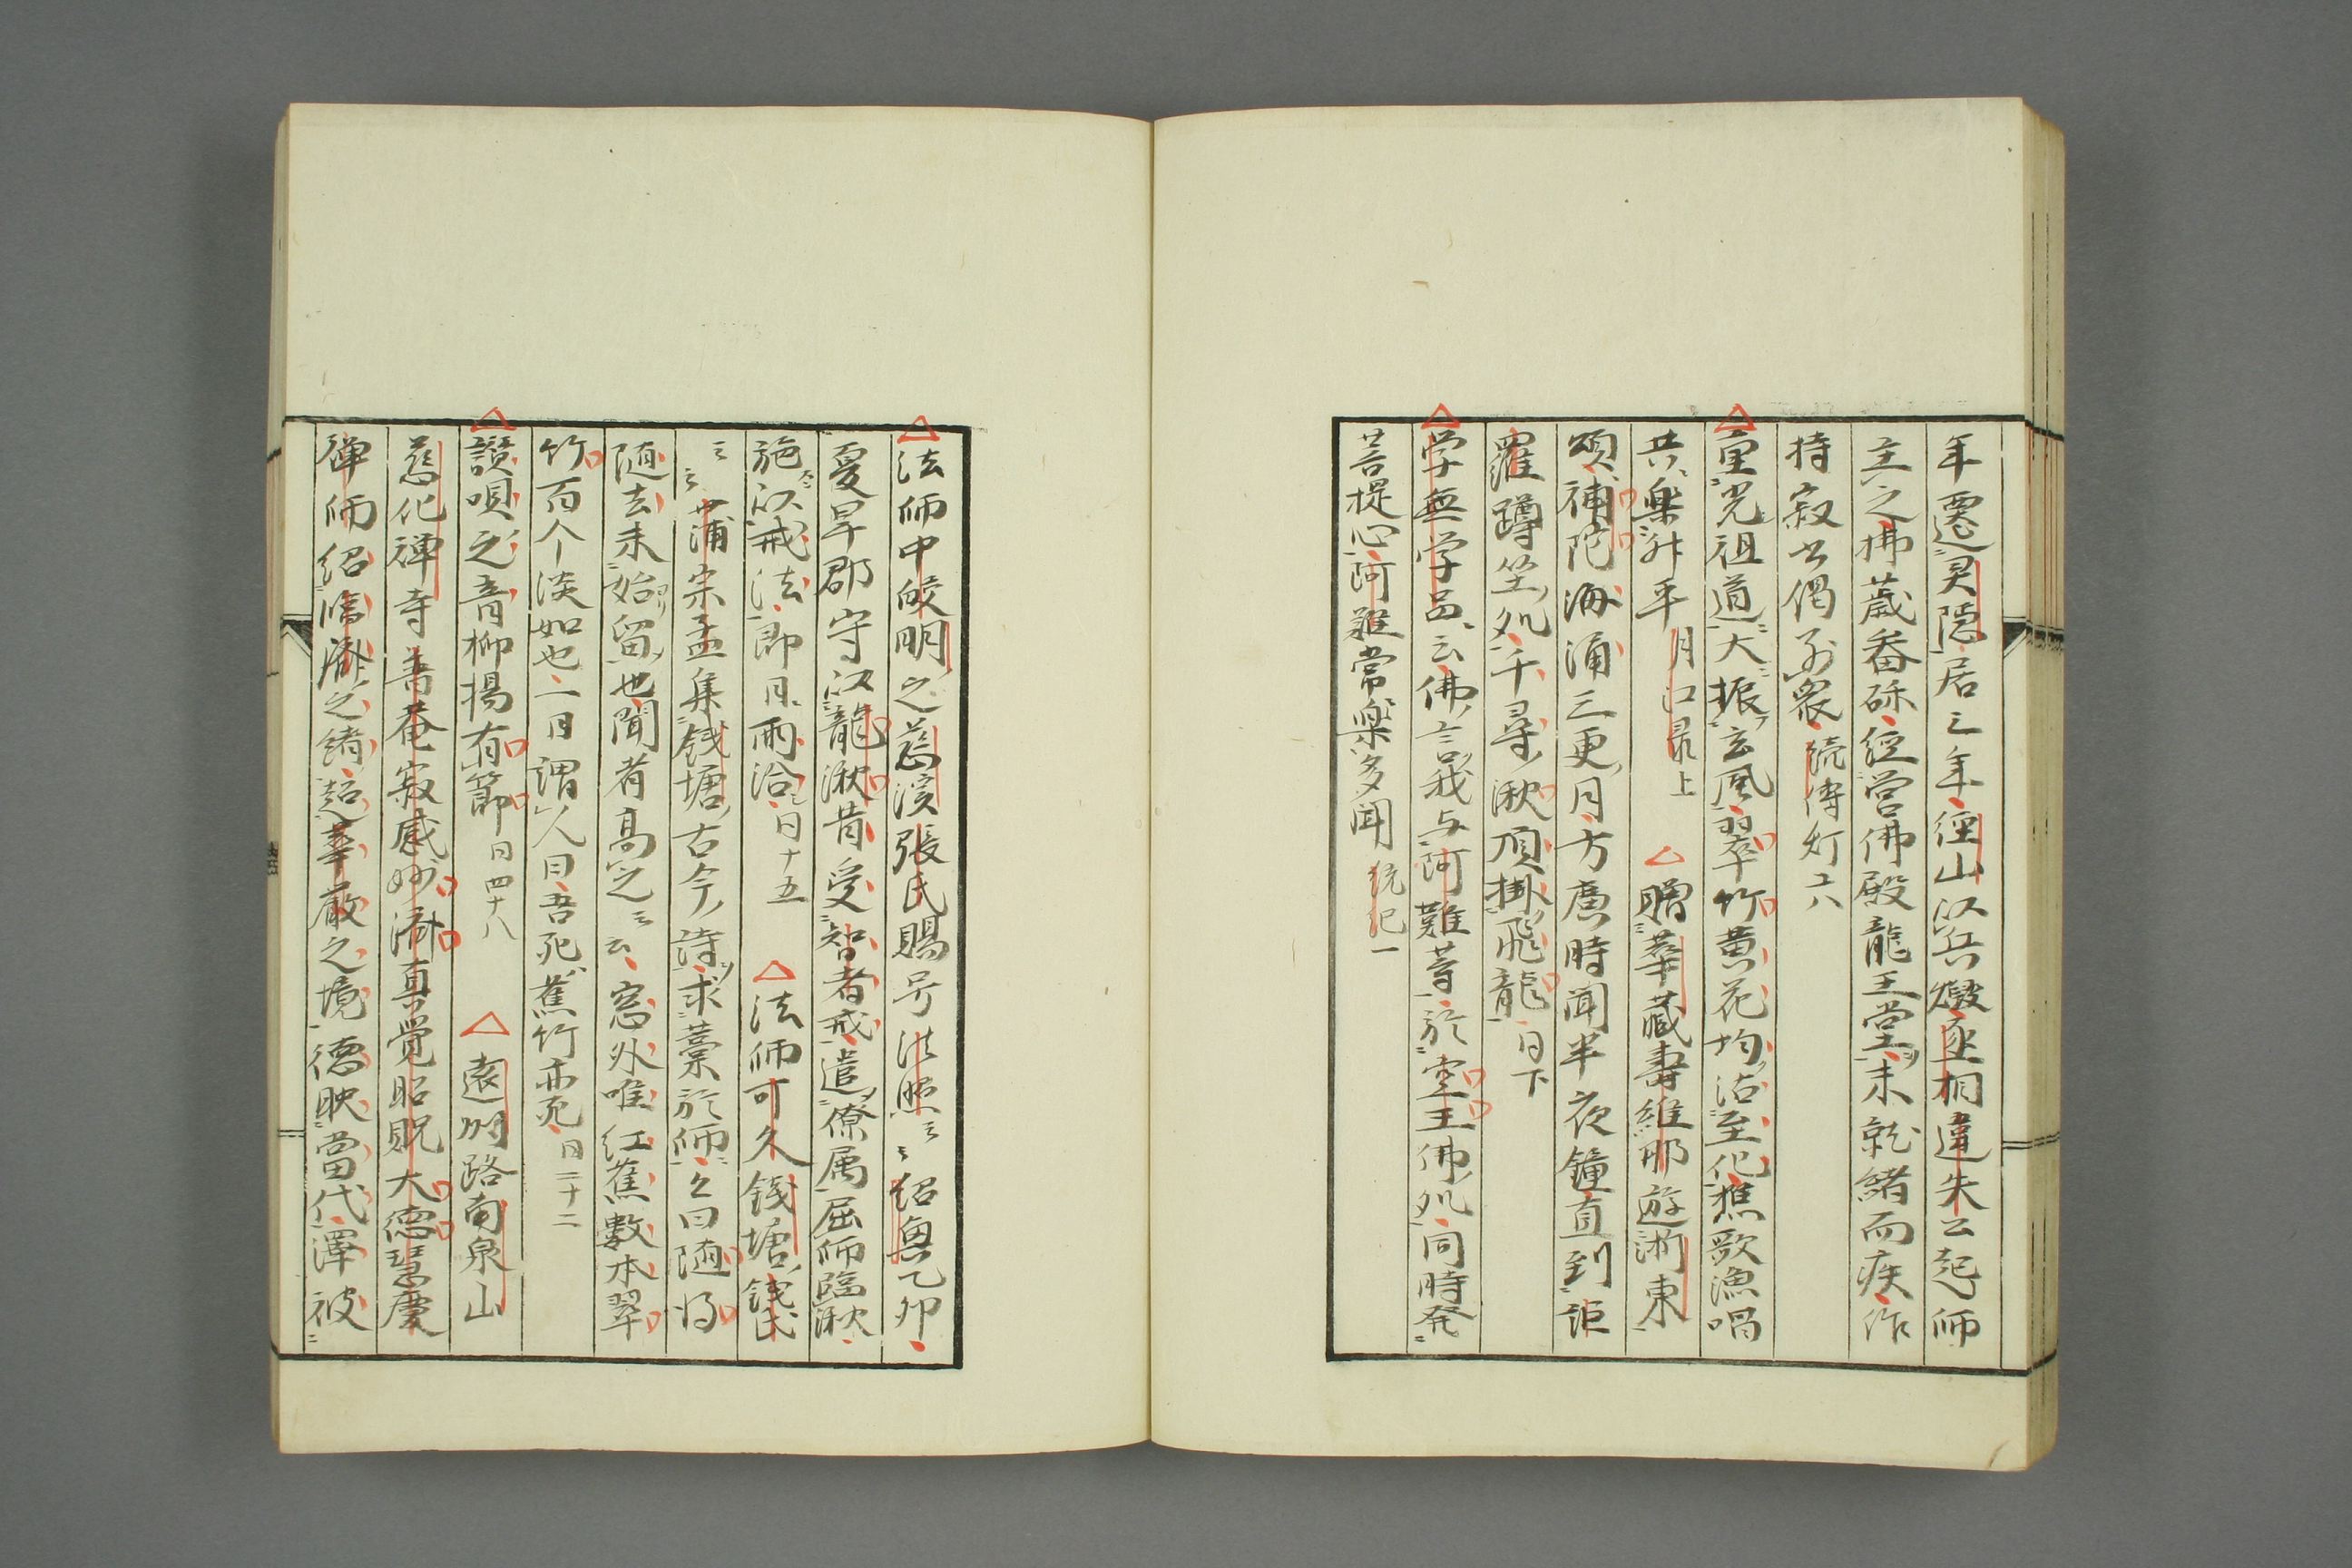 年遷灵隠居三年径山以兵燬亟相違失公起師
主之拂蕆畚砾经営佛殿龍王堂未就緒而疾作
持寂书偈别衆続傳灯六
重光祖道大振玄風翠竹黄花均沾至化樵歌漁唱
共楽升平月江录上 贈華藏壽維那遊浙東
頌補陀海涌三更月方廣時聞半夜鐘直到詎
羅蹲坐処千尋湫頂掛飛龍日下
学無学品云佛言我与阿難等於空王佛処同時発
菩提心阿難常樂多聞统记一
法師中皎明之慈溪張氏賜号法照三三紹興乙卯
夏旱郡守以龍湫昔受智者戒遣僚属屈師臨湫
施以戒法即日雨洽日十五 法師可久錢塘錢氏
三三 蒲宗孟集銭塘古今詩求藁於師久曰随得
随去未始留也聞者高之三云窓外唯红蕉數本翠
竹百个淡如也一日謂人曰吾死蕉竹亦死日二十二
讃唄之音抑揚有節日四十八 袁州路南泉山
慈化禅寺普菴寂感妙济真覚昭貺大德慧慶
禅師绍临济之緒超華厳之境德映當代澤被